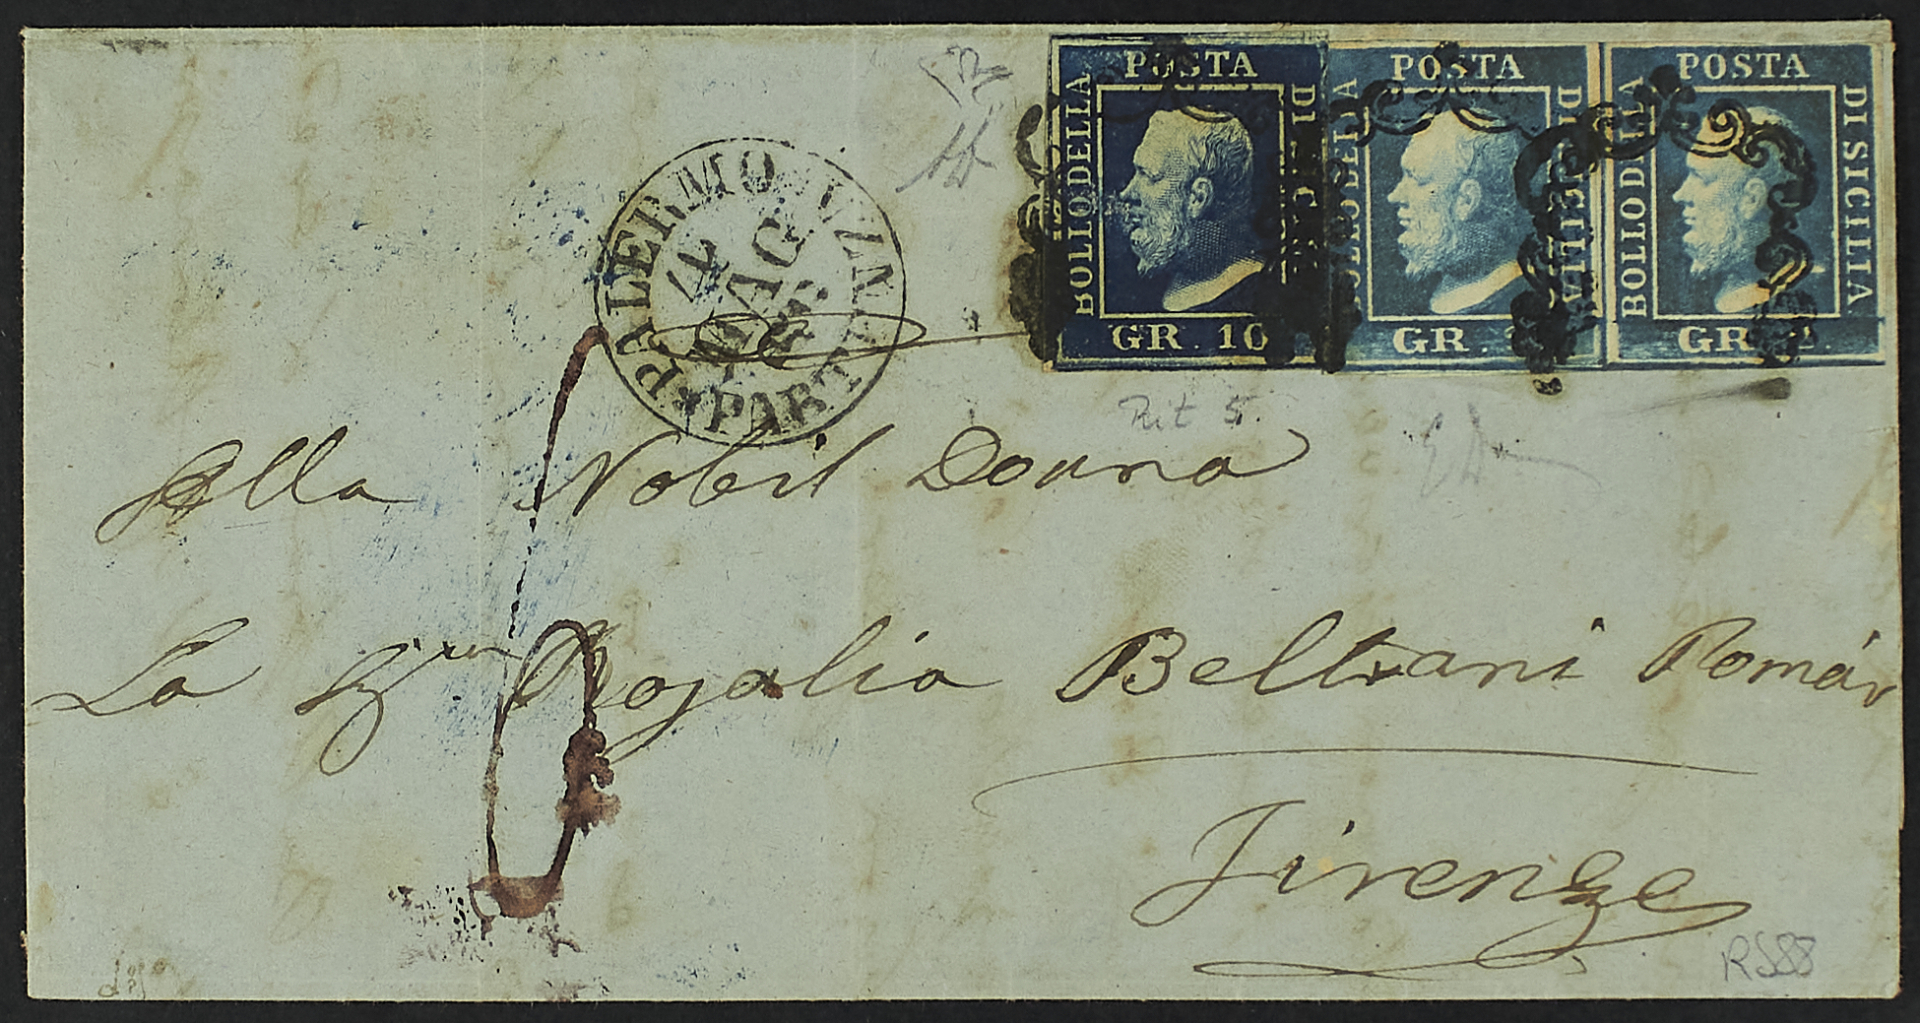 POSTA
BOLLO DELLA
DI SICILIA
GR. 10
POSTA
BOLLO DELLA
DI SICILIA
GR.
POSTA
BOLLO DELLA
DI SICILIA
GR
PALERMO
PARTENZA
MAG
Rit 5.
Alla Nobil Donna
La Rosalia Beltrani Román
Firenze
RS88